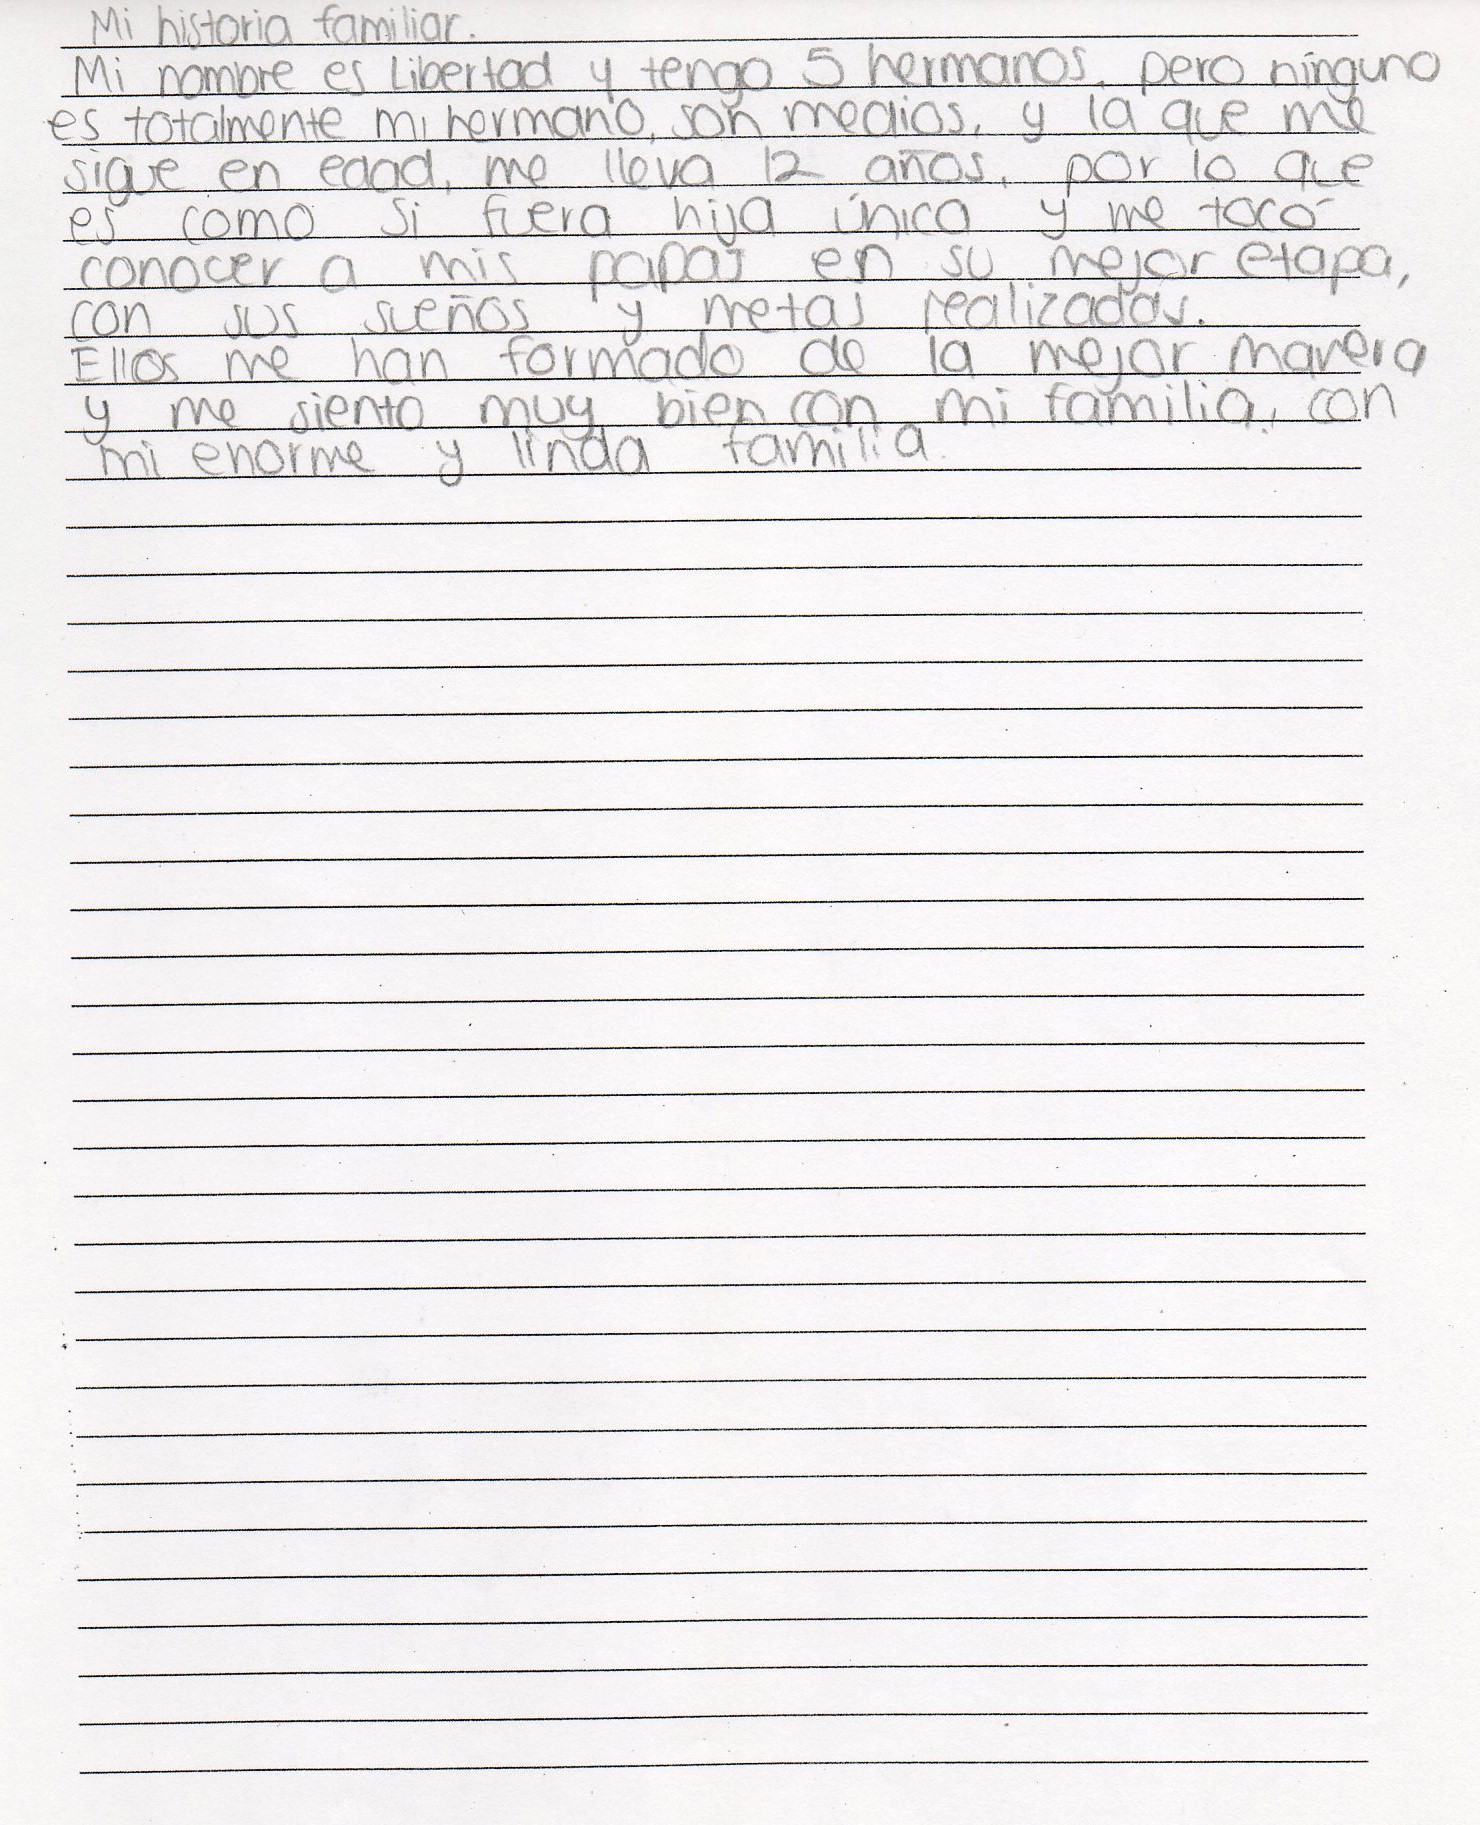 Mi historia familiar.
Mi nombre es Libertad y tengo 5 hermanos, pero ninguno
es totalmente mi hermano, son medios, y la que me
sigue en edad, me lleva 12 años, por lo que
es como si fuera hija única y me tocó
conocer a mis papas en su mejor etapa,
con sus sueños y metas realizadas.
Ellos me han formado de la mejor manera
y me siento muy bien con mi familia, con
mi enorme y linda familia.